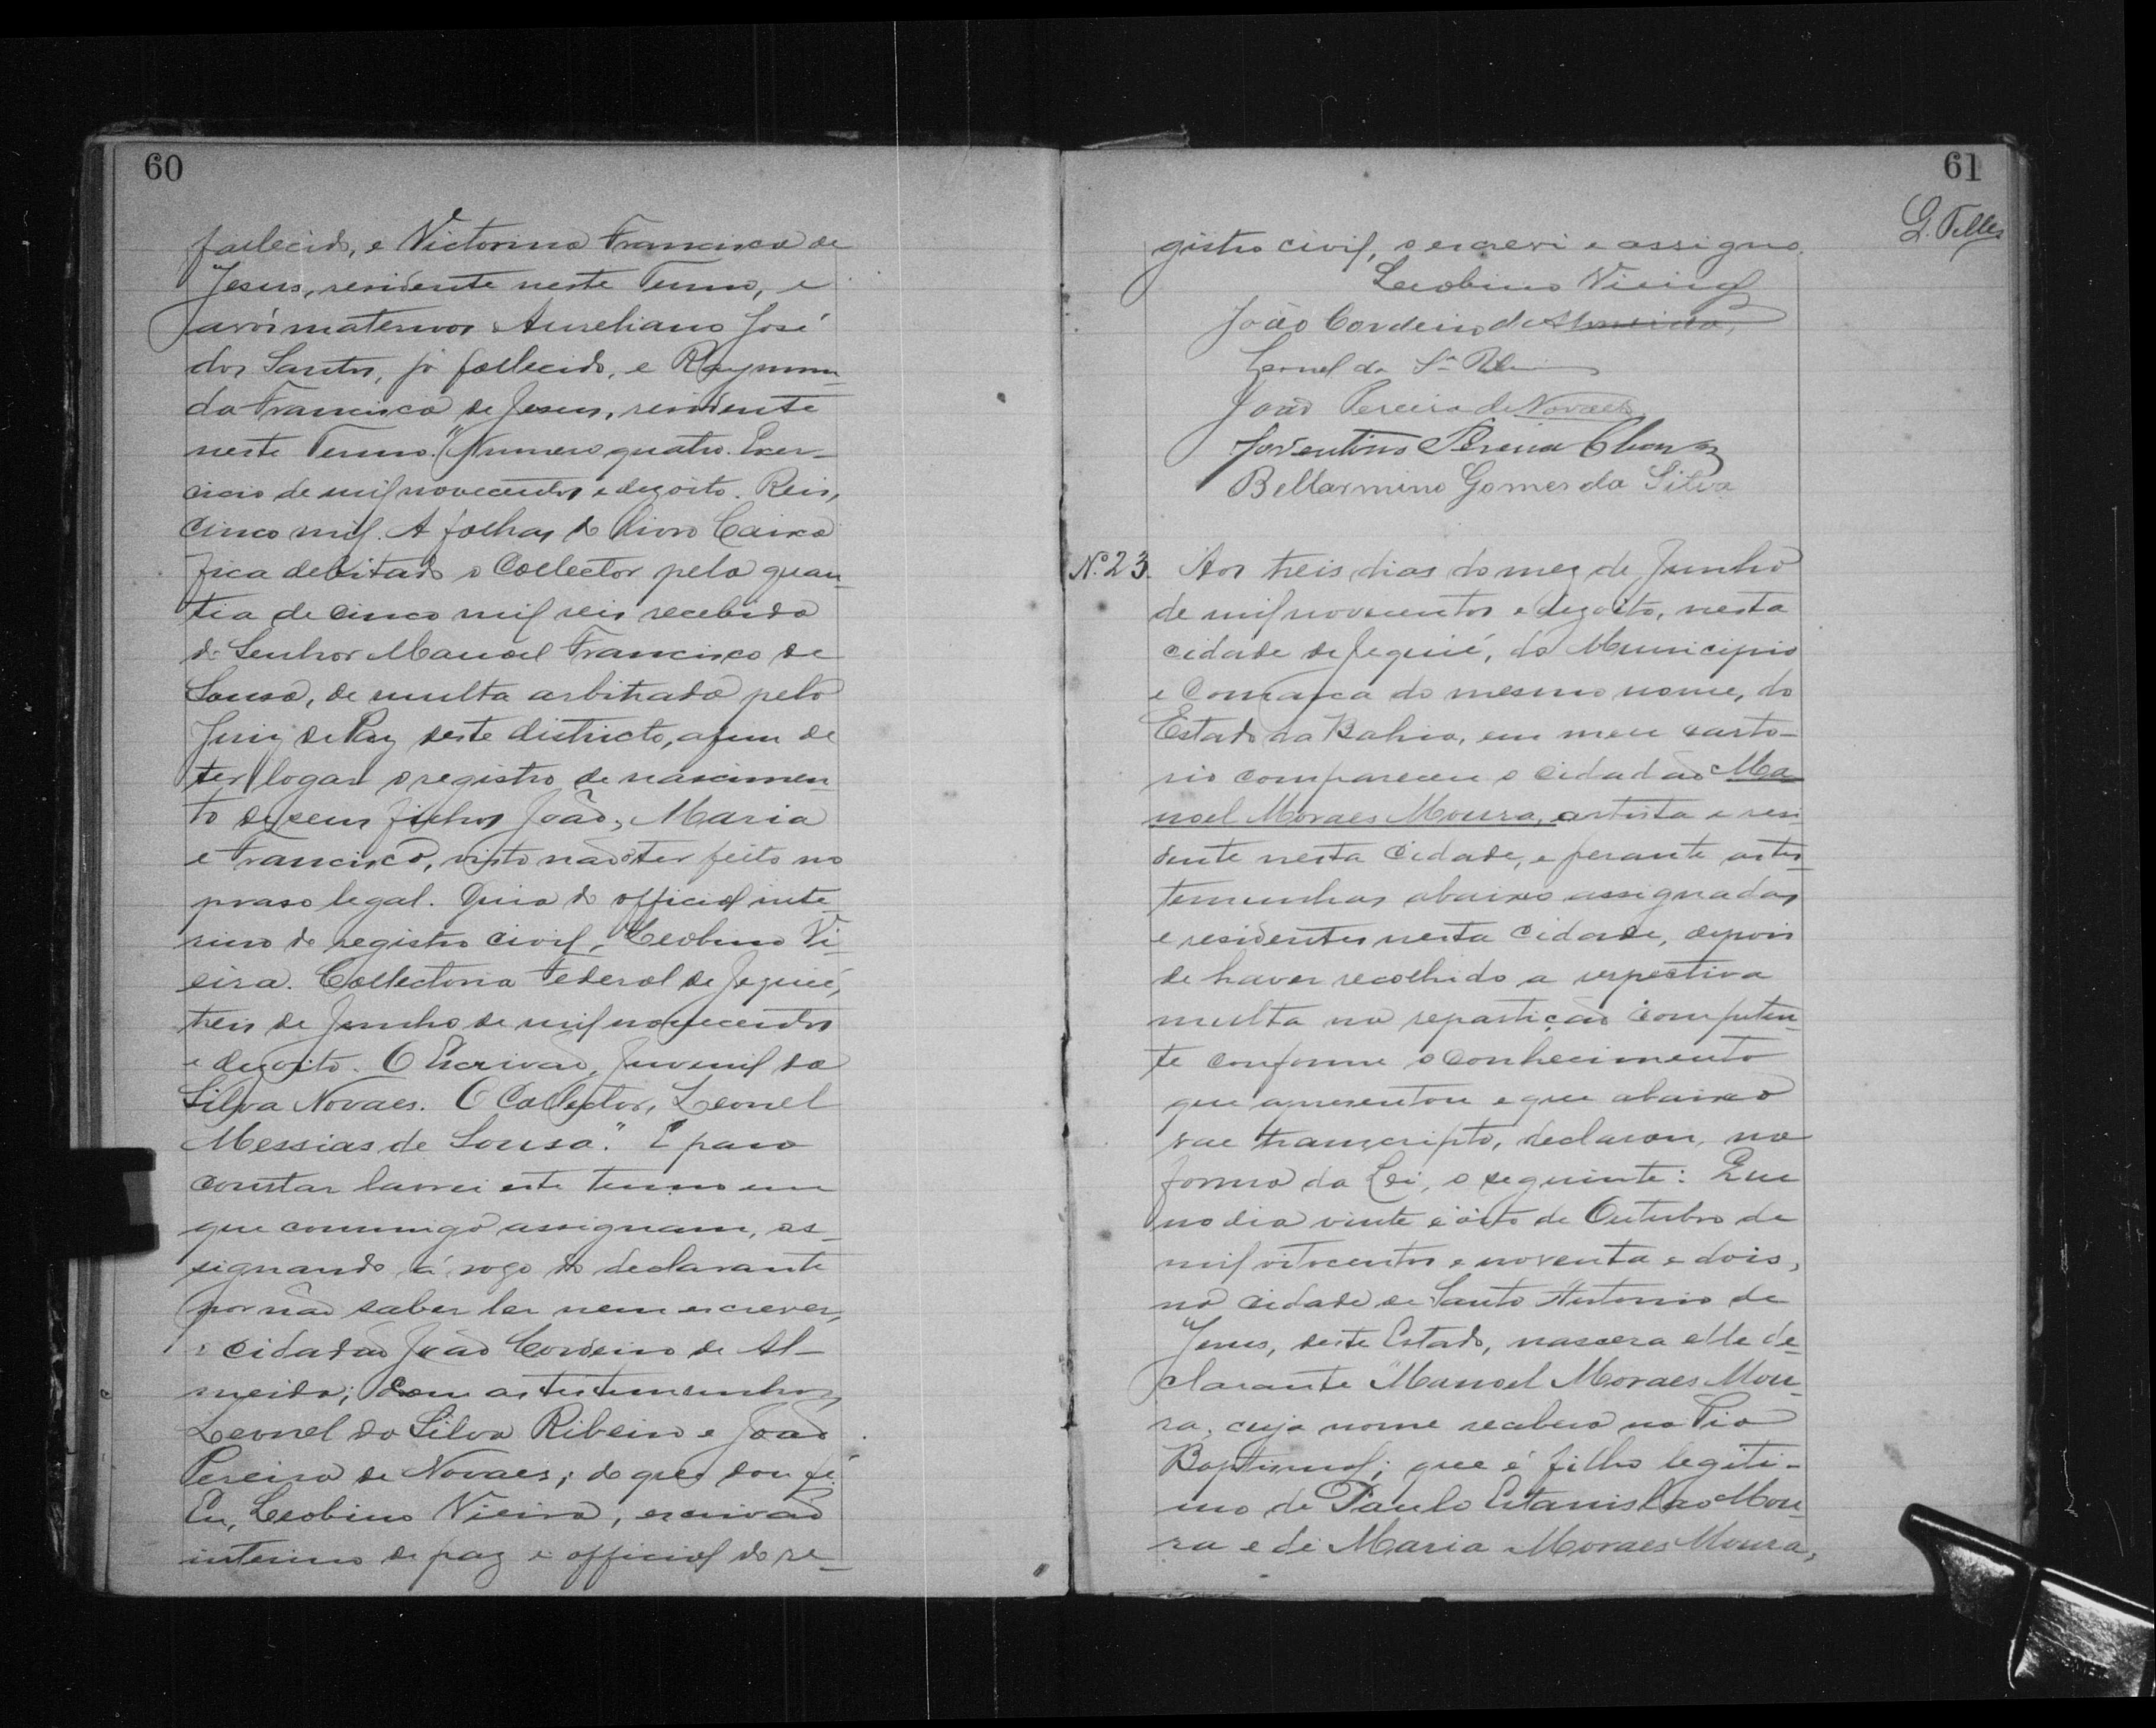 60
fallecido, e Victorina Francisca de
Jesus, residente neste Termo, e
avós maternos Aureliano José
dos Santos, já fallecido, e Raymun-
da Francisca de Jesus, residente
neste Termo. "Numero quatro. Exer-
cicio de mil novecentos e dezoito. Reis,
cinco mil. A folhas do livro Caixa
fica debitado o Collector pela quan-
tia de cinco mil reis recebida
do Senhor Manoel Francisco de
Sousa, de multa arbitrada pelo
Juiz de Paz deste districto, afim de
ter logar o registro de nascimen-
to de seus filhos João, Maria
e Francisco, visto não o ter feito no
praso legal. Guia do official inte-
rino do registro civil, Leobino Vi-
eira. Collectoria Federal de Jequié,
treis de Junho de mil novecentos
e dezoito. O Escrivão, Juvenil da
Silva Novaes. O Collector, Leonel
Messias de Sousa." E para
constar lavrei este termo em
que commigo assignam, as-
signando á rogo do declarante
por não saber ler nem escrever,
o cidadão João Cordeiro de Al-
meida; com as testemunhas
Leonel da Silva Ribeiro e João
Pereira de Novaes; do que dou fé.
Eu, Leobino Vieira, escrivão
interino de paz e official do re-
61
L. Telles
gistro civil, o escrevi e assigno.
Leobino Vieira
João Cordeiro de Almeida,
Leonel da Sª Ribeiro
João Pereira de Novaes
Joventino Pereira
Bellarmino Gomes da Silva
Nº. 23. Aos treis dias do mez de Junho
de mil novecentos e dezoito, nesta
cidade de Jequié, do Municipio
e Comarca do mesmo nome, do
Estado da Bahia, em meu carto-
rio compareceu o cidadão Ma-
noel Moraes Moura, artista e resi-
dente nesta cidade, e perante as tes-
temunhas abaixo assignadas
e residentes nesta cidade, depois
de haver recolhido a respectiva
multa na repartição competen-
te conforme o conhecimento
que apresentou e que abaixo
vae transcripto, declarou, na
forma da Lei, o seguinte: Que
no dia vinte e oito de Outubro de
mil oitocentos e noventa e dois,
na cidade de Santo Antonio de
Jesus, deste Estado, nascera elle de-
clarante Manoel Moraes Mou-
ra, cujo nome recebera na Pia
Baptismal; que é filho legiti-
mo de Paulo Estanislao Mou-
ra e de Maria Moraes Moura,